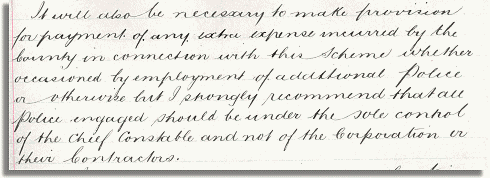 It will also be necessary to make provision
for payment of any extra expense incurred by the
County in connection with this Scheme whether
occasioned by employment of additional Police
or otherwise but I strongly recommend that all
Police engaged should be under the sole control
of the Chief Constable and not of the Corporation or
their Contractors.